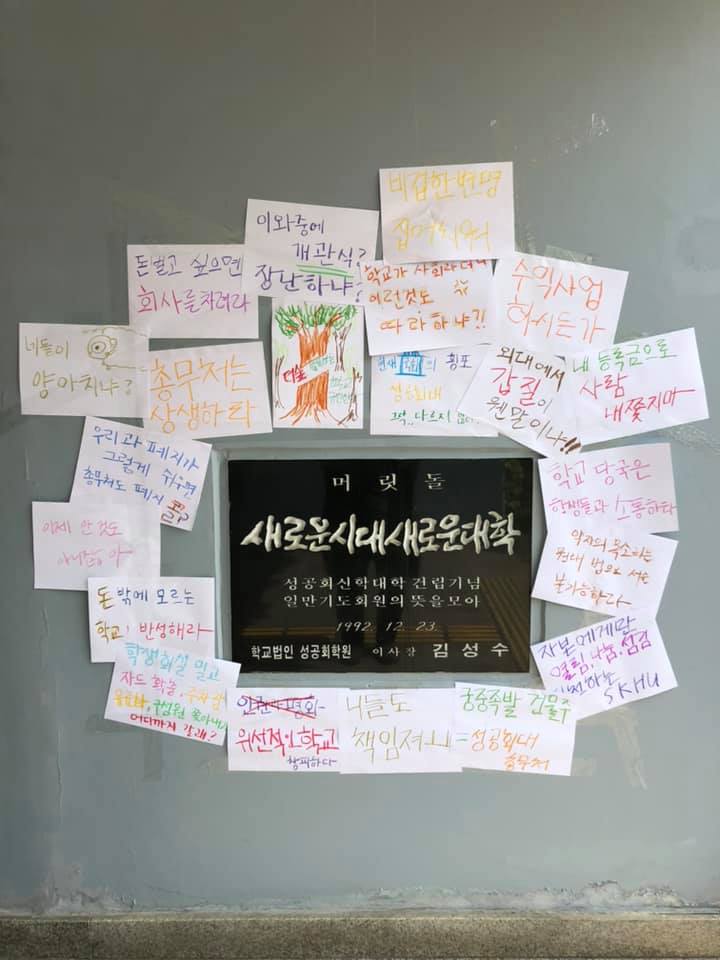 비겁한 변명
집어치워
이와중에
개관식?
장난하냐?
돈벌고 싶으면
회사를차려라
학교가 사회라더니
이런것도
따라하냐?!
수익사업
하시든가
네들이
양아치냐?
총무처는
상생하라
의 횡포
성공회대
외대에서
갑질이
웬말이냐!!
내 등록금으로
사람
내쫓지마
우리과 폐지가
그렇게 쉬우면
총무처도 폐지
콜?
학교 당국은
학생들과 소통하라
이제 안 것도
아니잖아
약자의 목소리는
돈 밖에 모르는
학교! 반성해라
자본에게만
열림, 나눔, 섬김
SKHU
학생회실 밀고
어디까지 갈래?
인권과평화
위선적인학교
창피하다
니들도
책임져
궁중족발 건물주
=성공회대
총무처
머릿돌
새로운시대새로운대학
성공회신학대학 건립기념
일만기도회원의 뜻을모아
1992. 12. 23.
학교법인 성공회학원 이사장 김성수